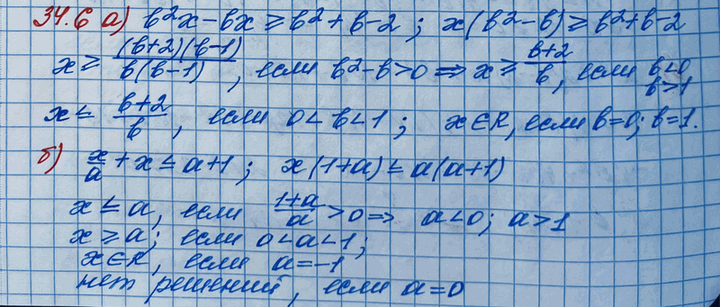 34.6 а) в²x - вx ≥ в² + в - 2 ; x(в² - в) ≥ в² + в - 2
x ≥ (в+2)(в-1)/в(в-1) , если в² - в > 0 ⇒ x ≥ в+2/в , если в<0 в>1
x ≤ в+2/в , если 0 < в < 1 ; x ∈ R, если в=0; в=1.
б) x/a + x ≤ a+1 ; x(1+a) ≤ a(a+1)
x ≤ a, если 1+a/a > 0 ⇒ a<0; a>1
x ≥ a; если 0<a<1;
x ∈ R, если a=-1
нет решений, если a=0